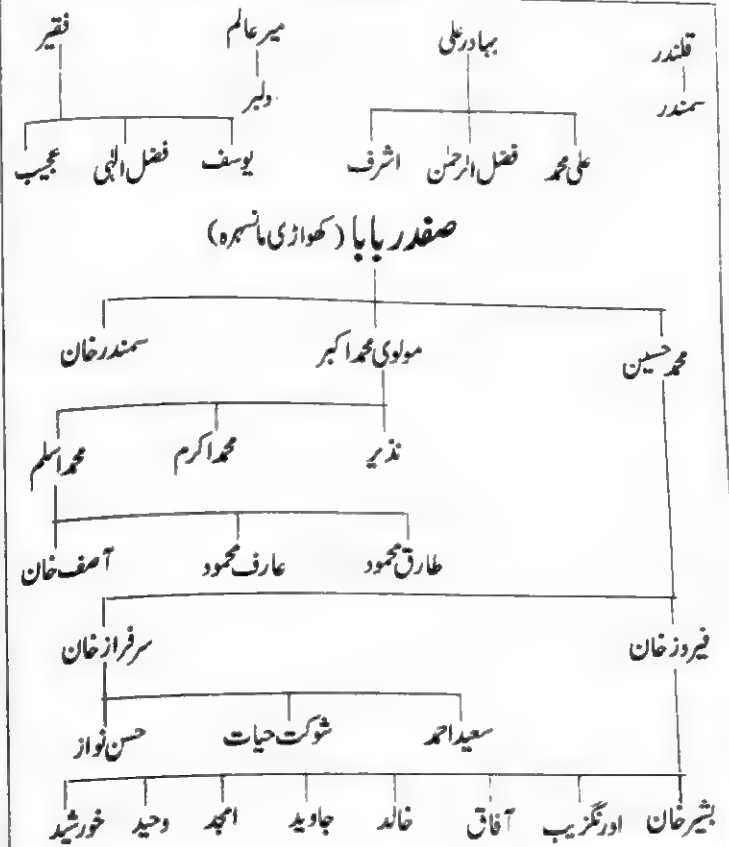 قلندر بہادر علی میر عالم فقیر
سمندر دلبر
علی محمد فضل الرحمٰن اشرف یوسف فضل الہی عجیب
صفدر بابا (کھواڑی مانسہرہ)
محمد حسین مولوی محمد اکبر سمندر خان
نذیر محمد اکرم محمد اسلم
طارق محمود عارف محمود آصف خان
فیروز خان سرفراز خان
سعید احمد شوکت حیات حسن نواز
بشیر خان اورنگزیب آفاق خالد جاوید امجد وحید خورشید